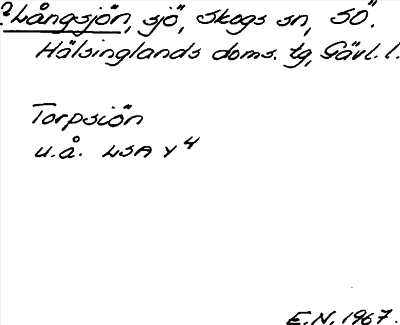 ?Långsjön, sjö, Skogs sn, SÖ.
Hälsinglands doms. tg, Gävl. l.
Torpsiön
u.å. LSA Y4
E.N. 1967.